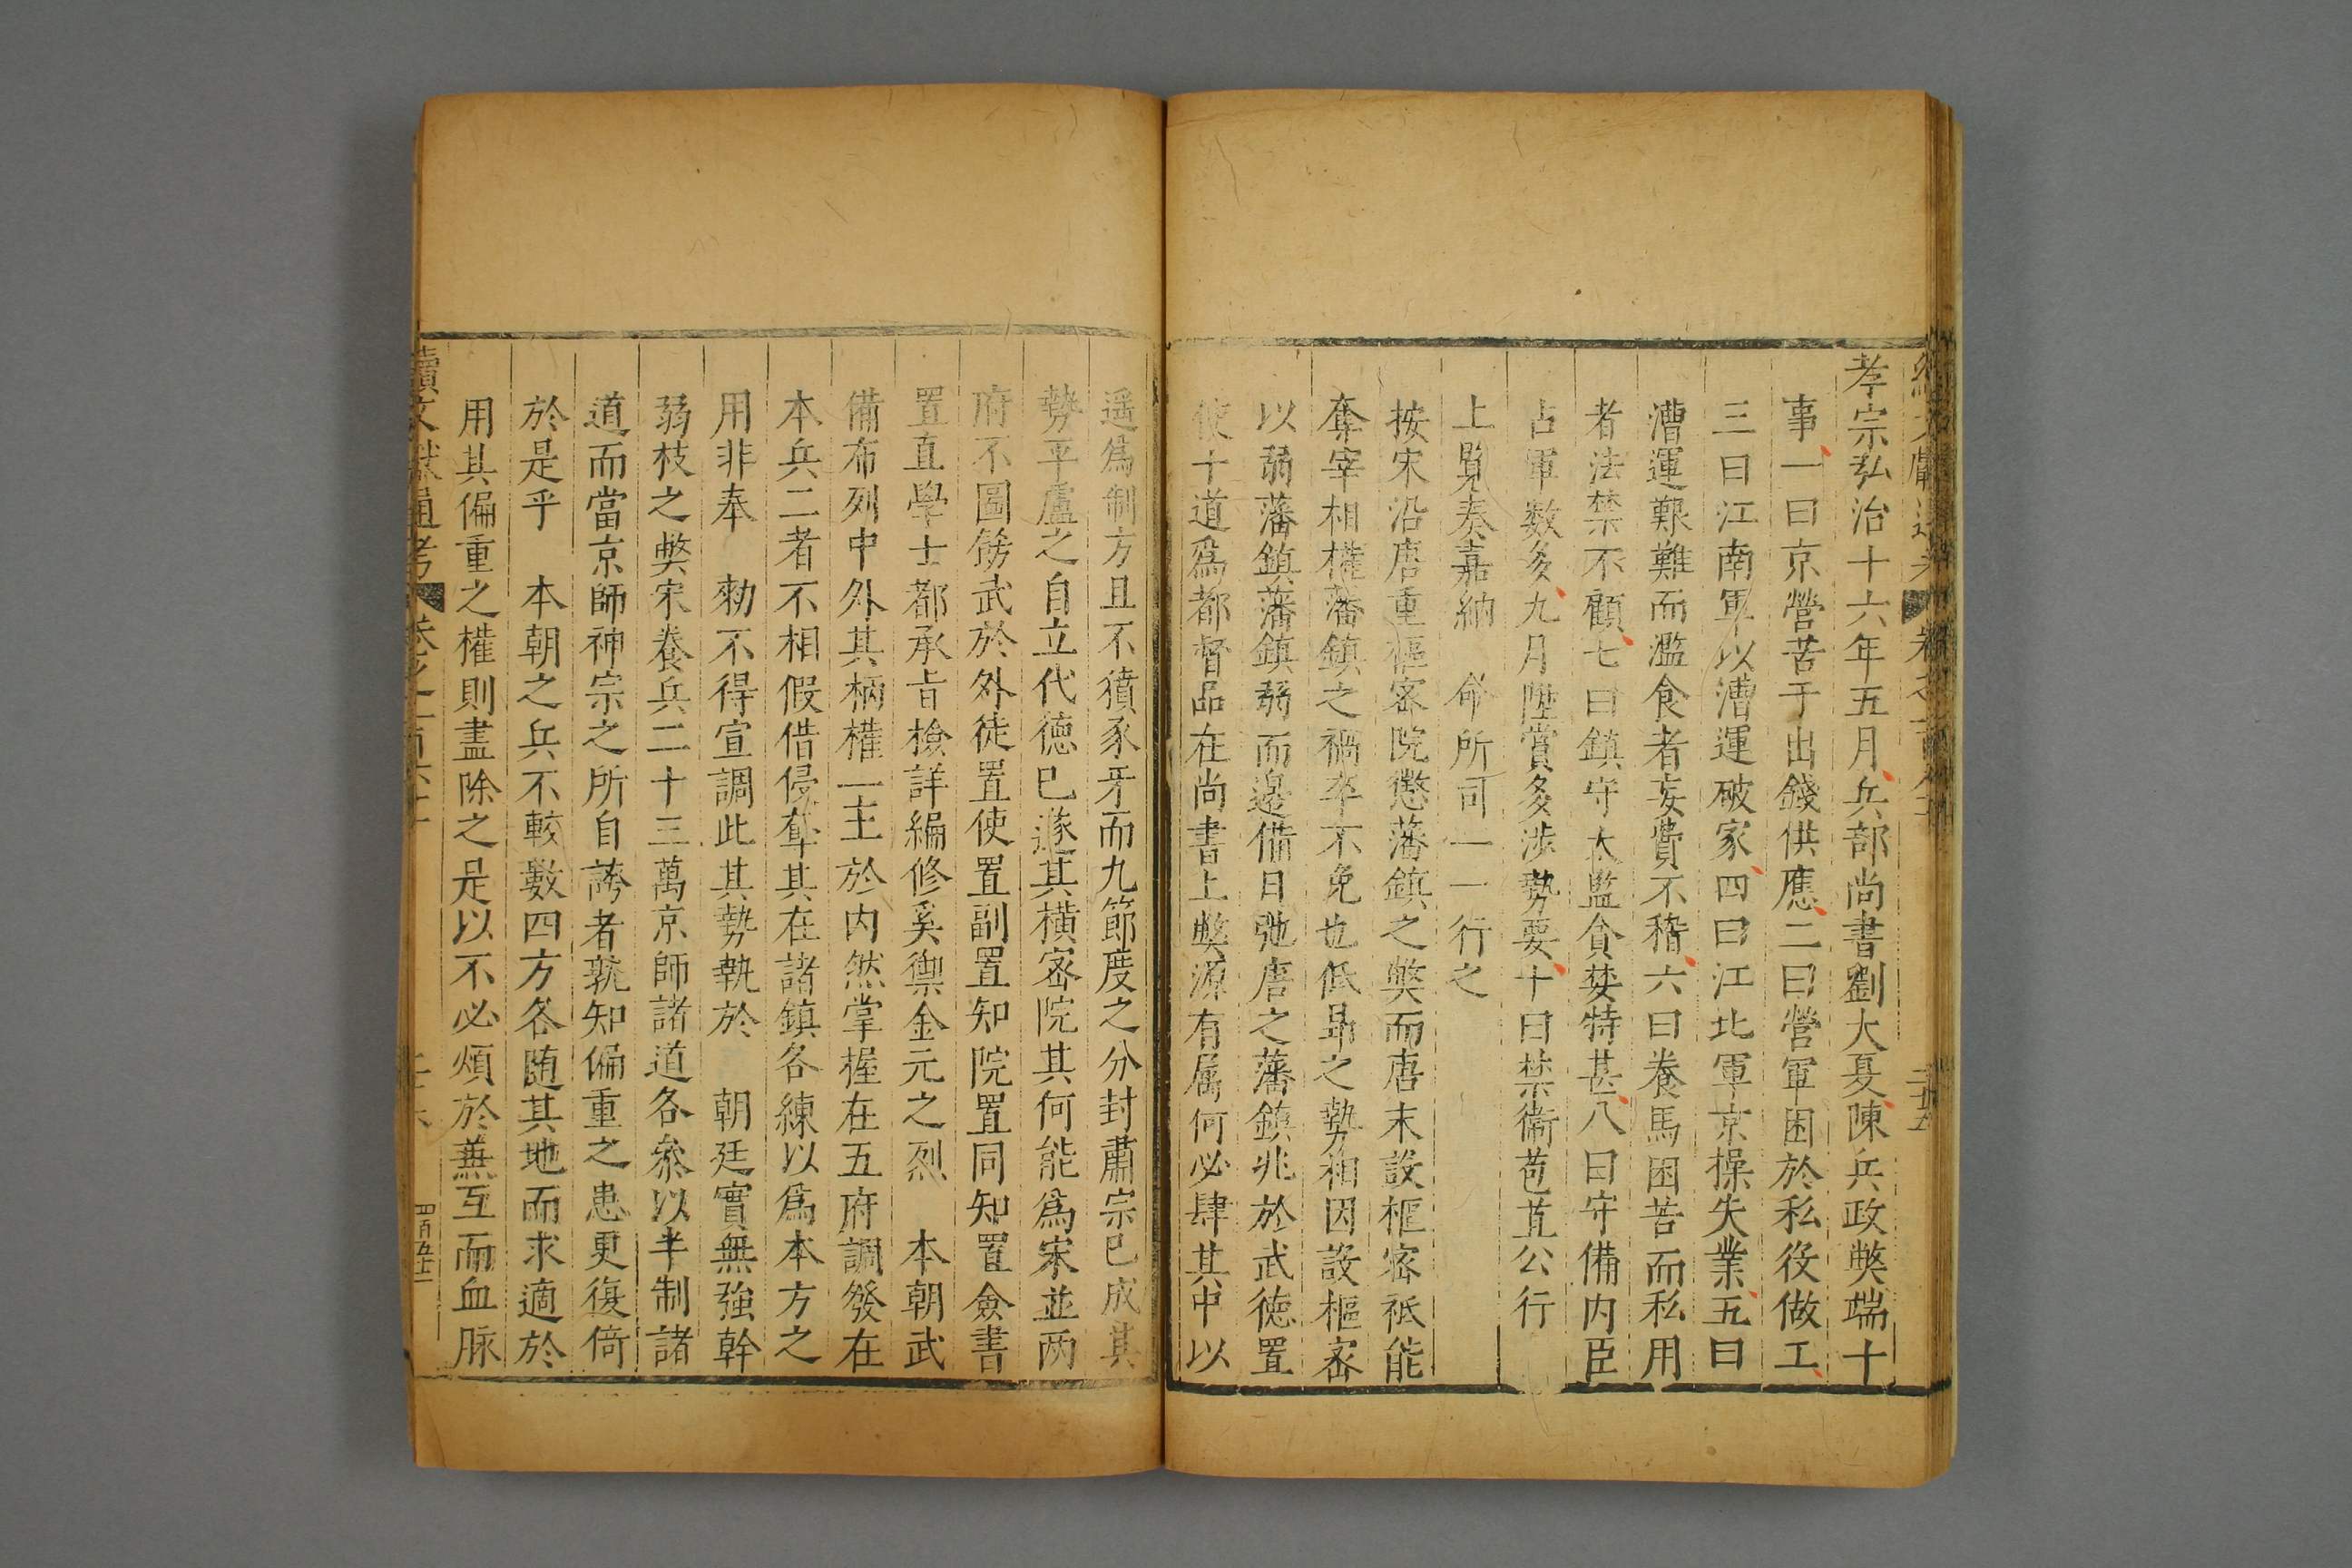 孝宗弘治十六年五月兵部尚書劉大夏陳兵政獘端十
事一曰京營苦于出錢供應二曰營軍困於私役做工
三曰江南軍以漕運破家四曰江北軍京操失業五曰
漕運艱難而濫食者妄費不稽六曰養馬困苦而私用
者法禁不顧七曰鎮守太監貪婪特甚八曰守備内臣
占軍数多九月陞賞多涉勢要十曰禁衞苞苴公行
上覧奏嘉納 命所司一一行之
按宋沿唐重樞密院懲藩鎮之獘而唐末設樞密祗能
奪宰相權藩鎮之禍卒不免也低昻之勢相因設樞密
以弱藩鎮藩鎮弱而邉備日弛唐之藩鎮兆於武徳置
使十道爲都督品在尚書上獘源有属何必肆其中以
遥爲制方且不豶豕牙而九節度之分封肅宗已成其
勢平盧之自立代德已遂其橫宻院其何能爲宋並两
府不圖飭武於外徒置使置副置知院置同知置僉書
置直學士都承㫖檢詳編修奚禦金元之烈 本朝武
備布列中外其柄權一主於内然掌握在五府調發在
本兵二者不相假借侵奪其在諸鎮各練以爲本方之
用非奉 勑不得宣調此其勢執於 朝廷實無強幹
弱枝之獘宋養兵二十三萬京師諸道各叅以半制諸
道而當京師神宗之所自誇者孰知偏重之患更復倚
於是乎 本朝之兵不較數四方各随其地而求適於
用其偏重之權則盡除之是以不必煩於兼互而血脉
續文献通考 卷之一百六十 二十六